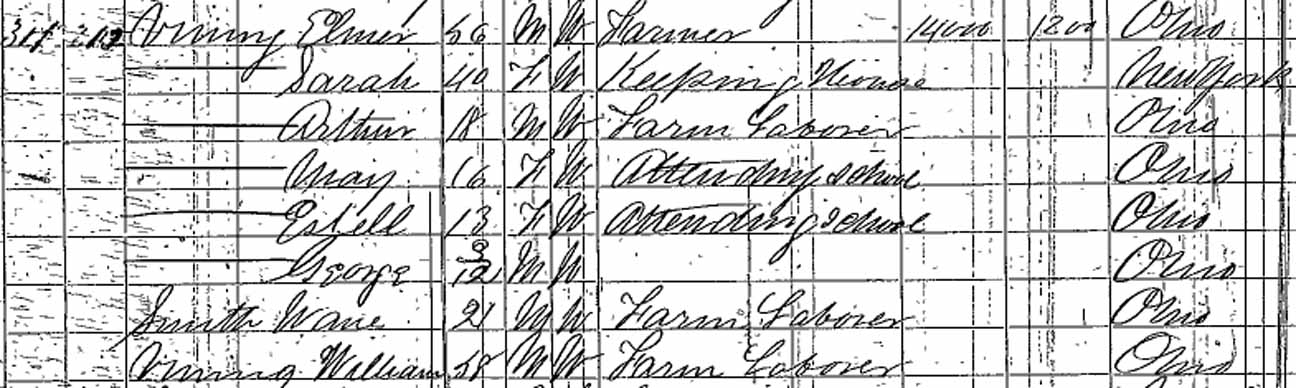 Vining Elmer 56 M W Farmer 14000 1200 Ohio
Sarah 40 F W Keeping House New York
Arthur 18 M W Farm Laborer Ohio
May 16 F W Attending School Ohio
Estell 13 F W Attending School Ohio
George 9/12 M W Ohio
Smith 21 M W Farm Laborer Ohio
Vining William 58 M W Farm Laborer Ohio